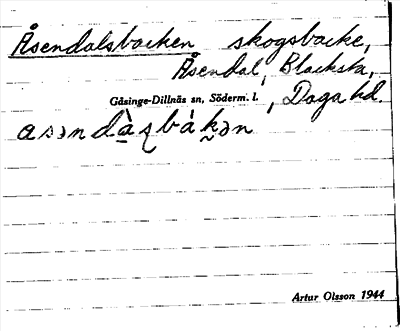 Åsendalsbacken skogsbacke,
Åsendal, Blacksta,
Gåsinge-Dillnäs sn, Söderm. l., Daga hd.
asəndà̱ʂbàk̬ən
Artur Olsson 1944